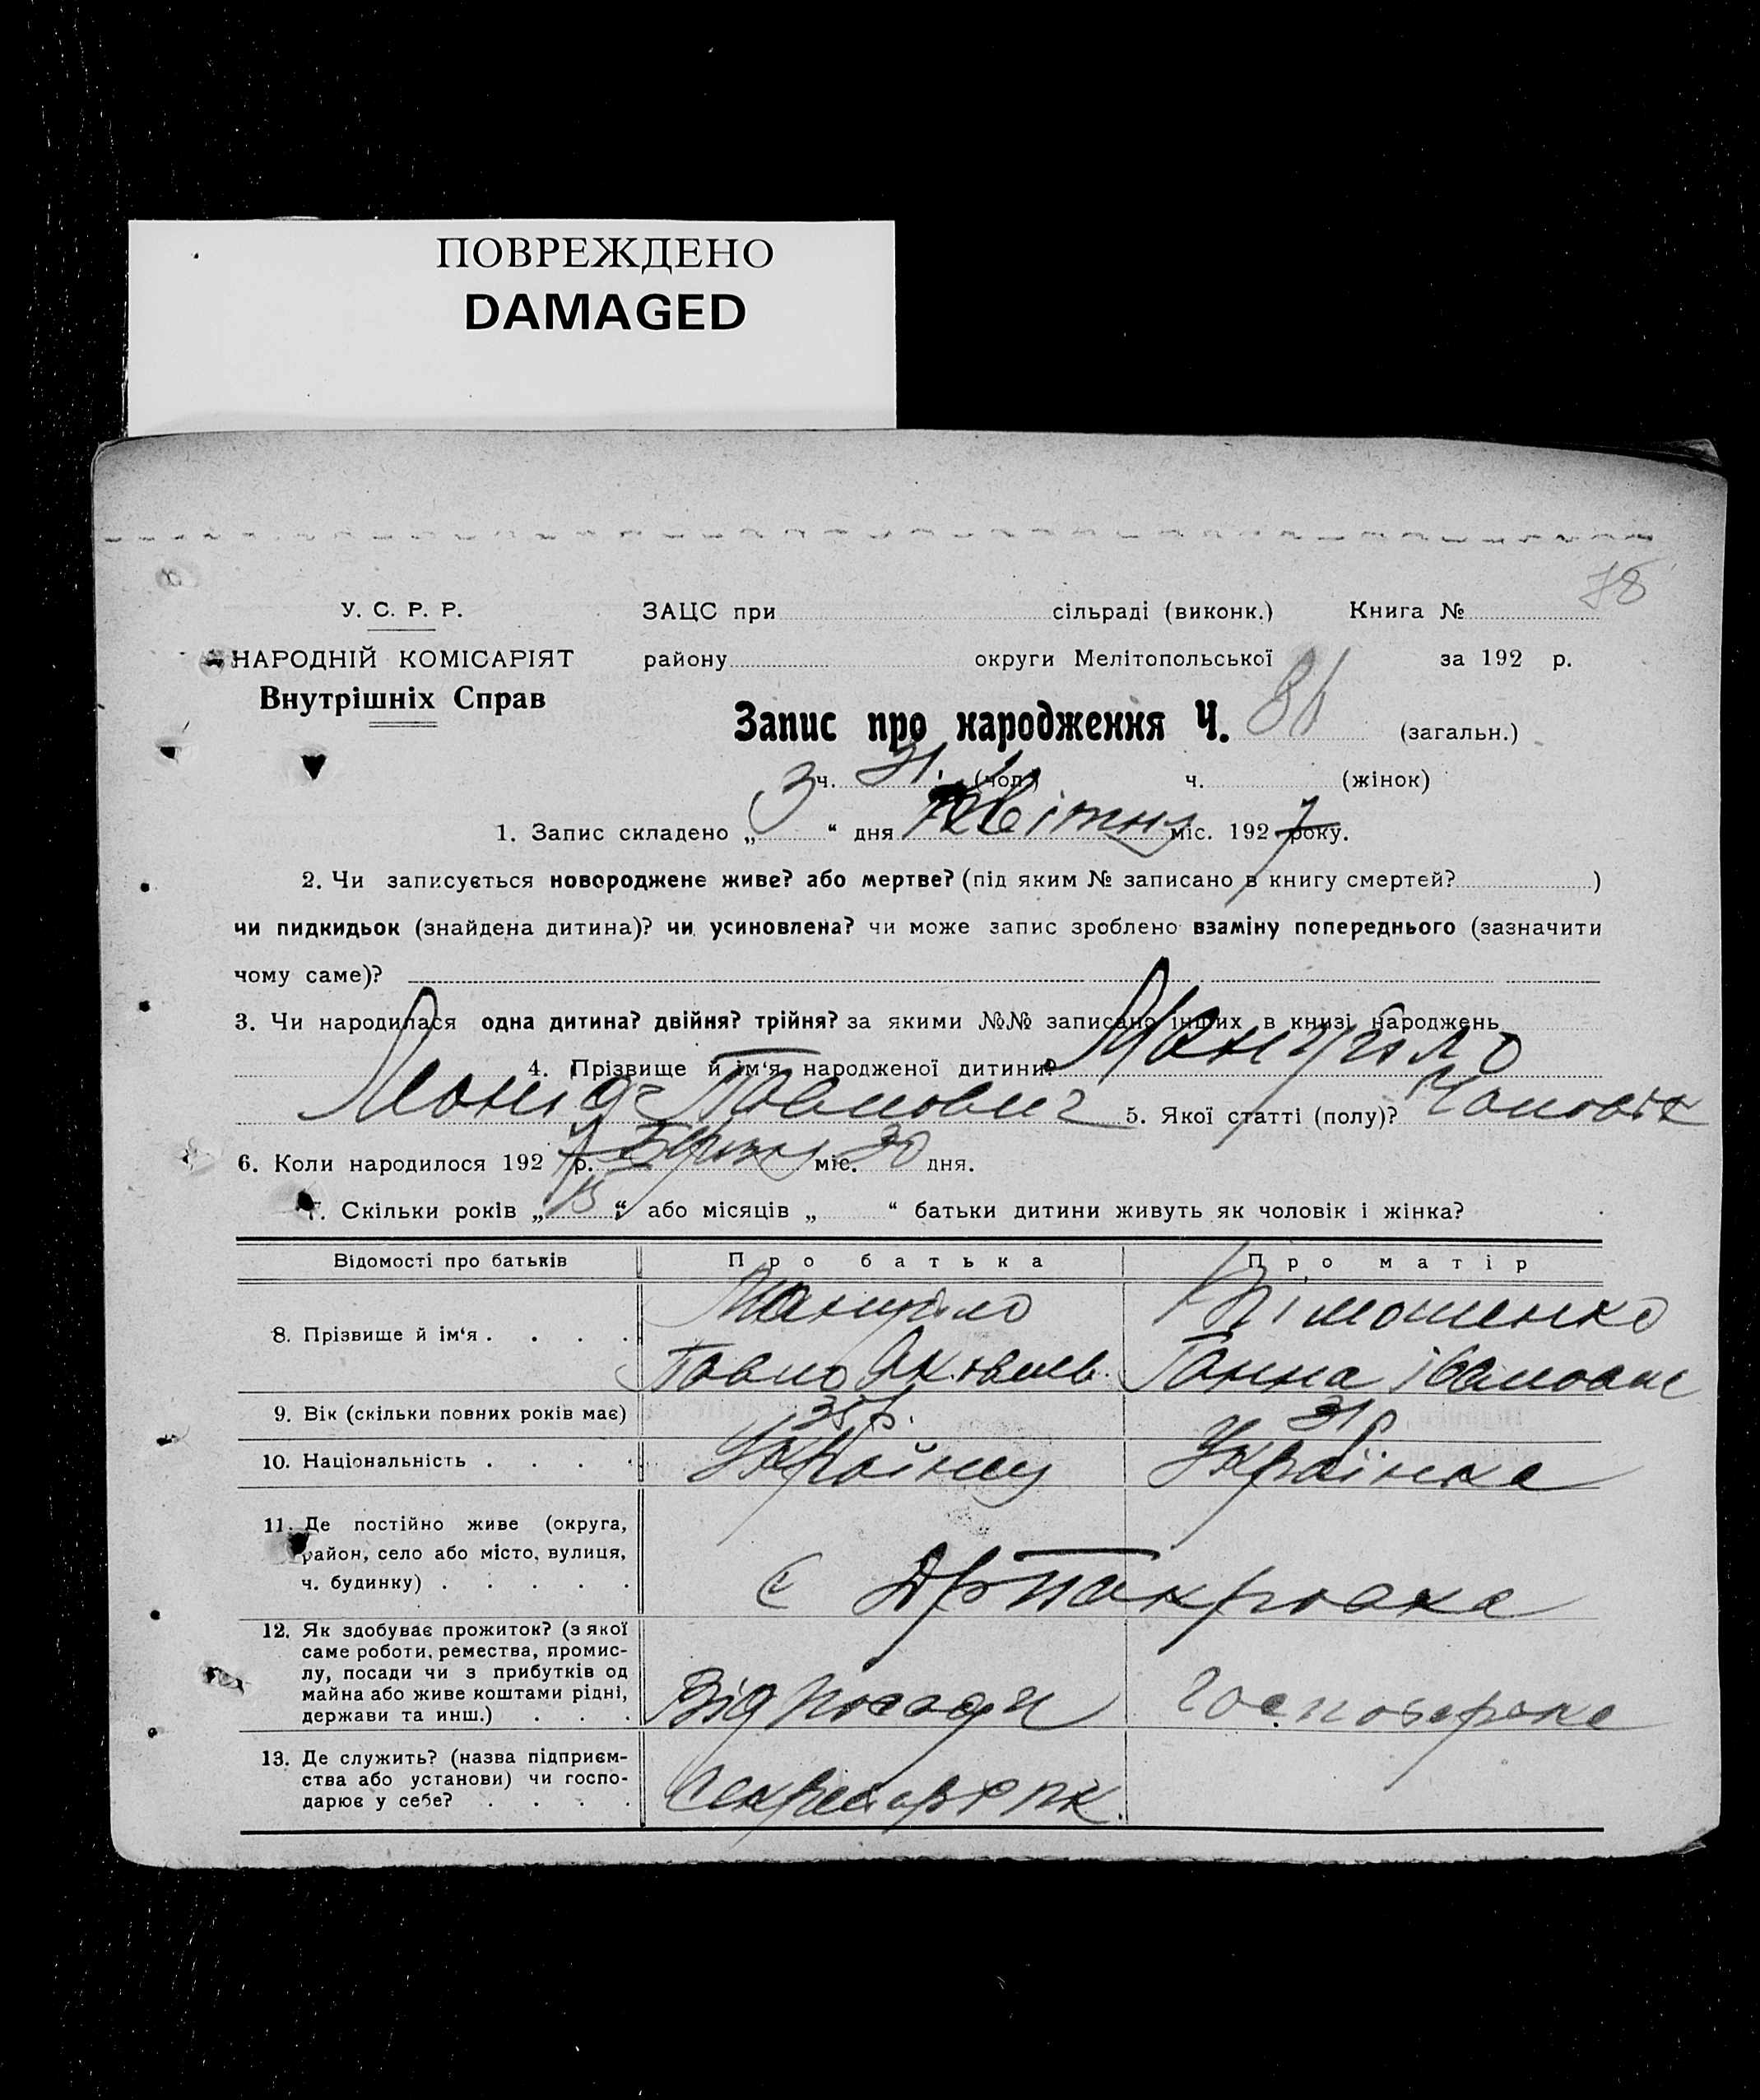 ПОВРЕЖДЕНО
DAMAGED
78
У. С. Р. Р. ЗАЦС при сільраді (виконк.) Книга №
НАРОДНІЙ КОМІСАРІЯТ району округи Мелітопольської за 192 р.
Внутрішніх Справ
Запис про народження Ч. 86 (загальн.)
ч. 31. (чол.) ч. (жінок)
1. Запис складено „ 3 “ дня Квітня міс. 192 7 року.
2. Чи записується новороджене живе? або мертве? (під яким № записано в книгу смертей? )
чи пидкидьок (знайдена дитина)? чи усиновлена? чи може запис зроблено взаміну попереднього (зазначити
чому саме)?
3. Чи народилася одна дитина? двійня? трійня? за якими №№ записано інших в книзі народжень
4. Прізвище й ім‘я народженої дитини?
Павлович 5. Якої статті (полу)? Чоловік
6. Коли народилося 192 7 р. міс. 30 дня.
7. Скільки років „ “ або місяців „ “ батьки дитини живуть як чоловік і жінка?
Відомості про батьків Про батька Про матір
8. Прізвище й ім‘я . . . . Тімошенко
Павло Ганна
9. Вік (скільки повних років має) 31 р
10. Національність . . . . Українец Українка
11. Де постійно живе (округа,
район, село або місто, вулиця,
ч. будинку) . . . . . с
12. Як здобуває прожиток? (з якої
саме роботи, ремества, промис-
лу, посади чи з прибутків од
майна або живе коштами рідні,
держави та инш.) . . . Від посади
13. Де служить? (назва підприєм-
ства або установи) чи госпо-
дарює у себе? . . . . Секретар